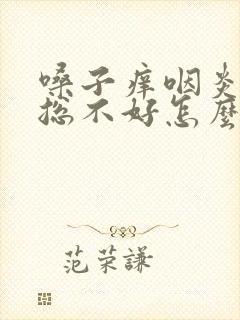 嗓子痒咽炎
总不好怎麽
范荣谦